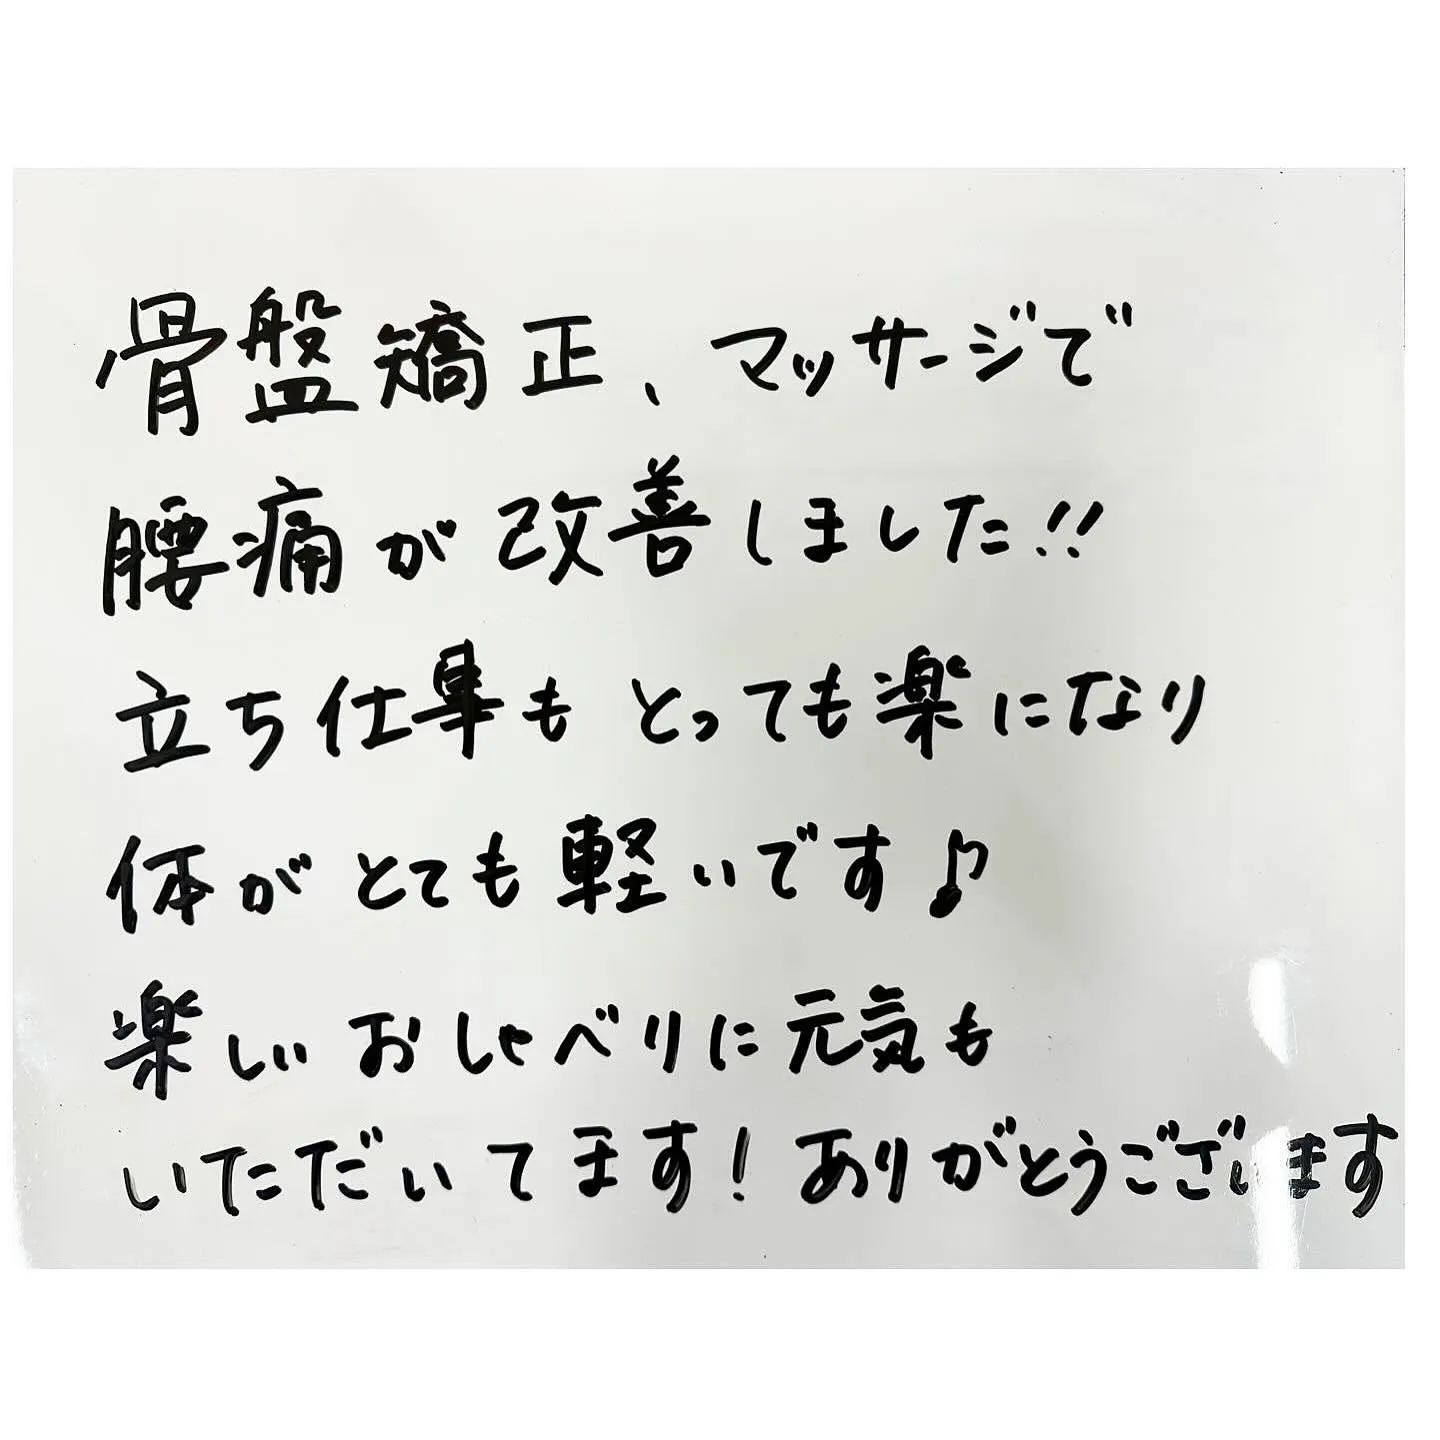 骨盤矯正、マッサージで
腰痛が改善しました!!
立ち仕事もとっても楽になり
体がとても軽いです♪
楽しいおしゃべりに元気も
いただいてます!ありがとうございます